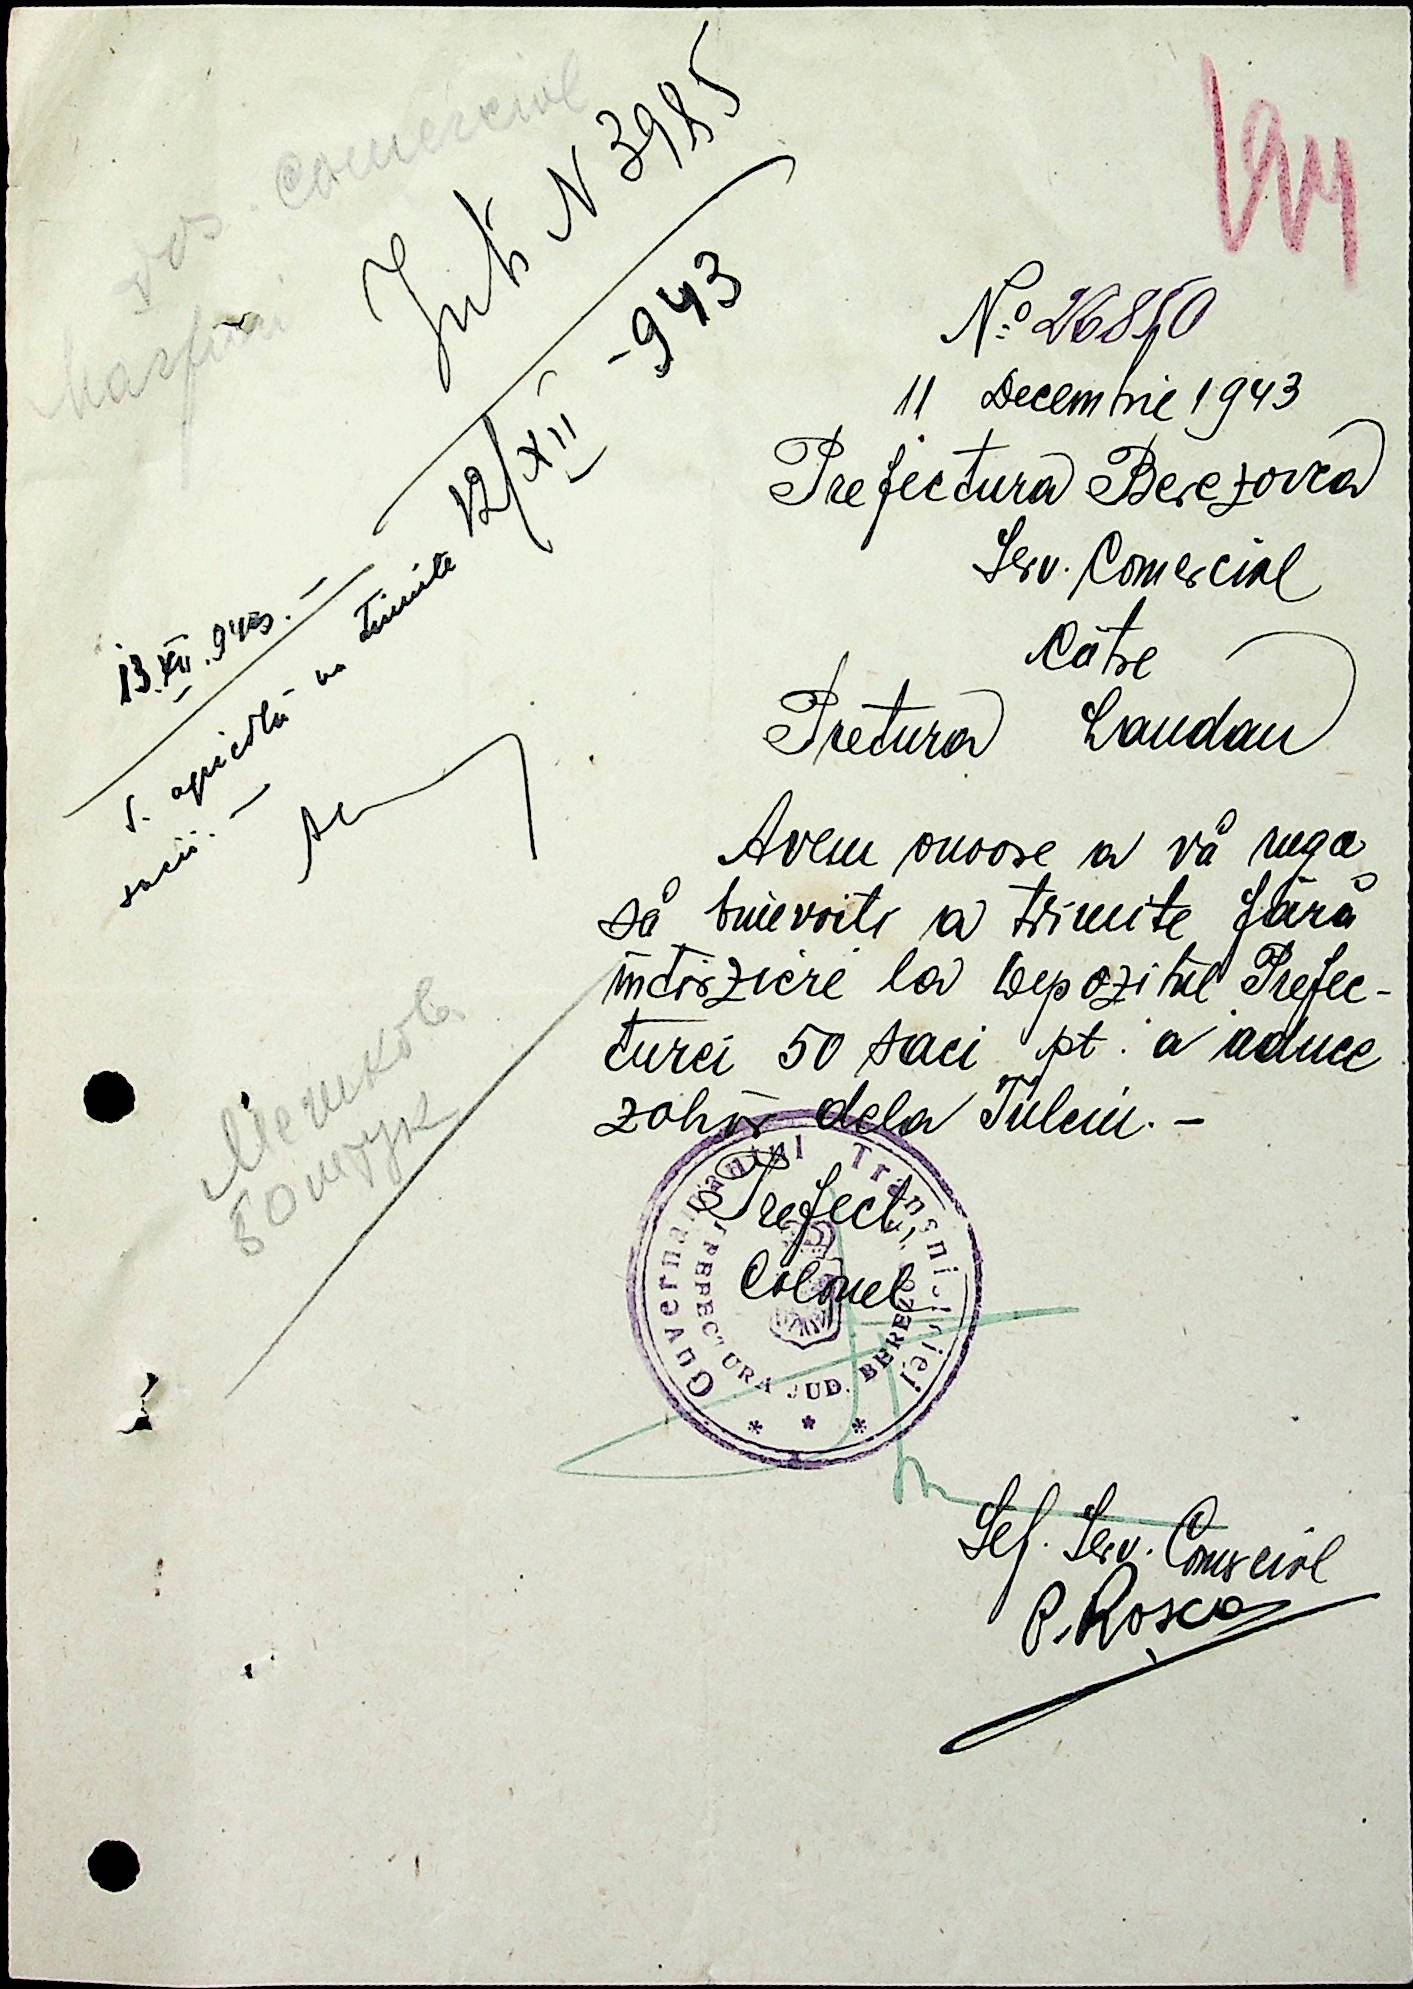 Dos. Comercial
Int. N 3985
12/XII -943
13.XII.943.-
S. agricolă va trimite
sacii.-
No 26850
11 Decembrie 1943
Prefectura Berezovca
Serv. Comercial
Către
Pretura Landau
Avem onoare a vă ruga
să binevoiti a trimite fără
intârziere la Depozitul Prefec-
turei 50 saci pt. a aduce
zahăr dela Tulcin.-
Prefect,
Colonel
Guvernamantul Transnistriei
PREFECTURA JUD. BEREZO
Sef. Serv. Comercial
P. Rosca